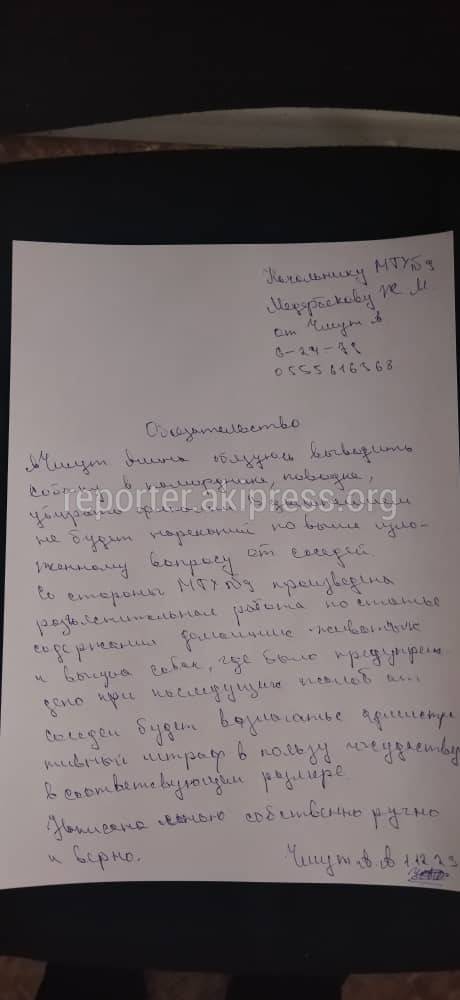 Начальнику МТУ №9
Медербекову Ж М
от Чмут А
8-24-79
0555616368
Обязательство
я Чмут Алина обязуюсь выводить
собаку в наморднике, поводке,
убирать фекалии
reporter.akipress.org
не будет нареканий по выше изло-
женному вопросу от соседей.
Со стороны МТУ №9 произведена
разъяснительная работа по статье
содержания домашних животных
и выгула собак, где было предупреж
дено при последующих жалоб от
соседей будет возлагатье админстр
тивный штраф в пользу государству
в соответсвующем размере
Написано мною собственно ручно
и верно. Чмут А.А 1.12.23